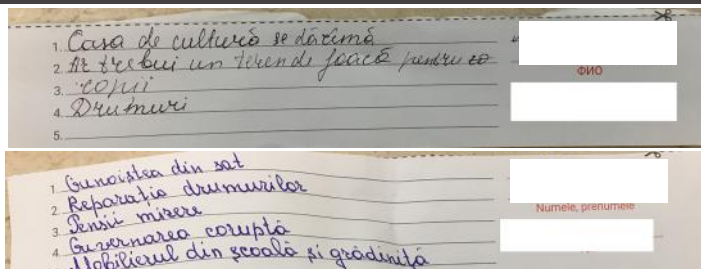 1. Casa de cultură se dărîmă
2. Ar trebui un teren de joacă pentru co
3. copii
4. Drumuri
5.
ФИО
1. Gunoiștea din sat
2. Reparația drumurilor
3. Pensii mizere
4. Guvernarea coruptă
Mobilierul din școală și grădiniță
Numele, prenumele